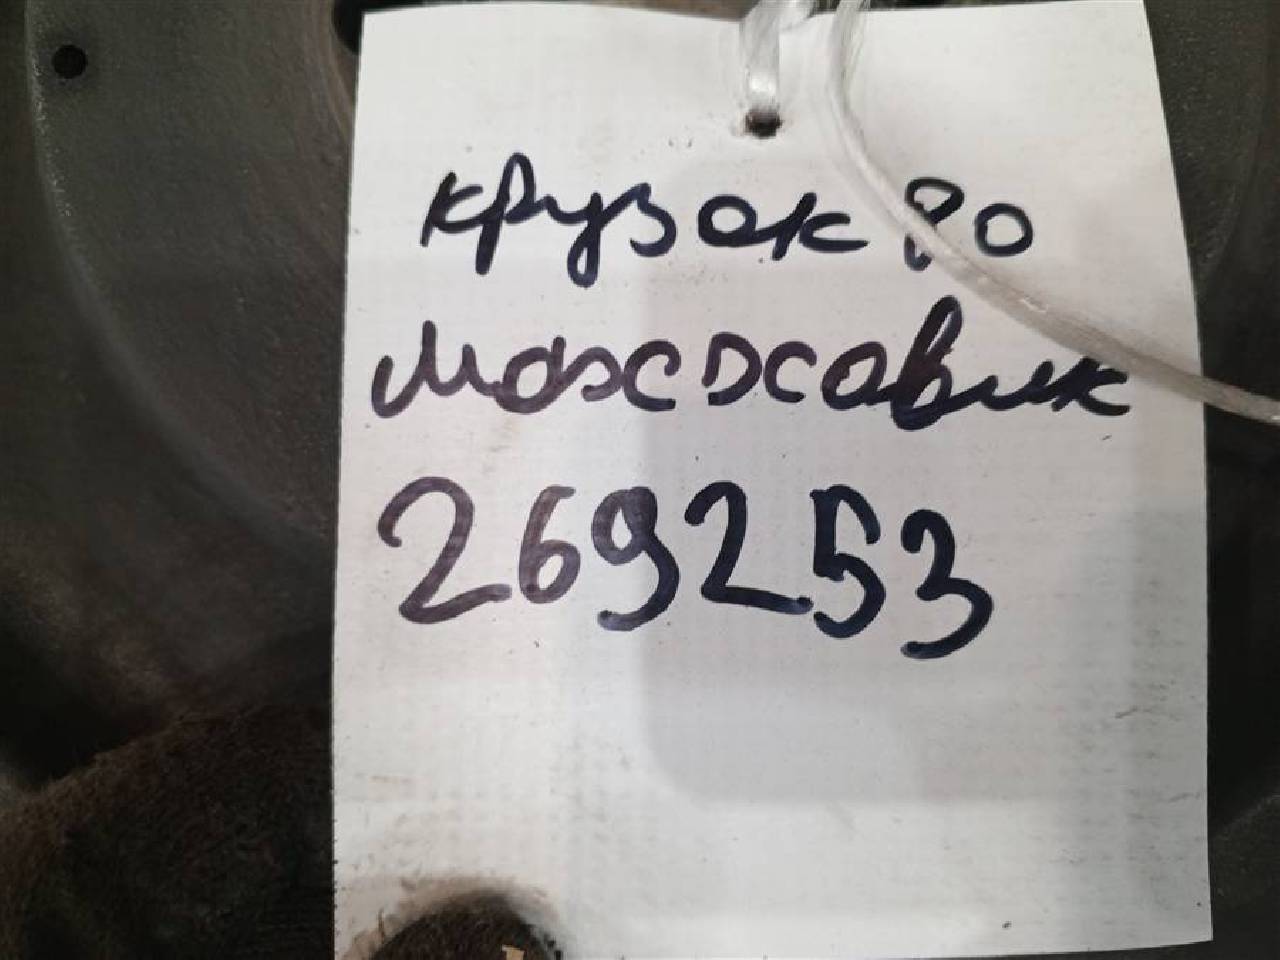 крузак 80
маххавик
269253